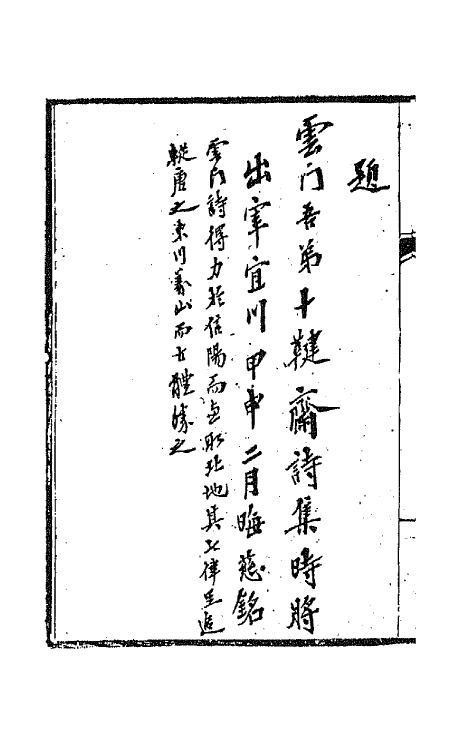 題
雲门吾弟十鞬齋詩集時將
出宰宜川甲申二月晦慈銘
雲门詩得力於信陽而取北地其七律足追
蹤唐之東川義山而體勝之